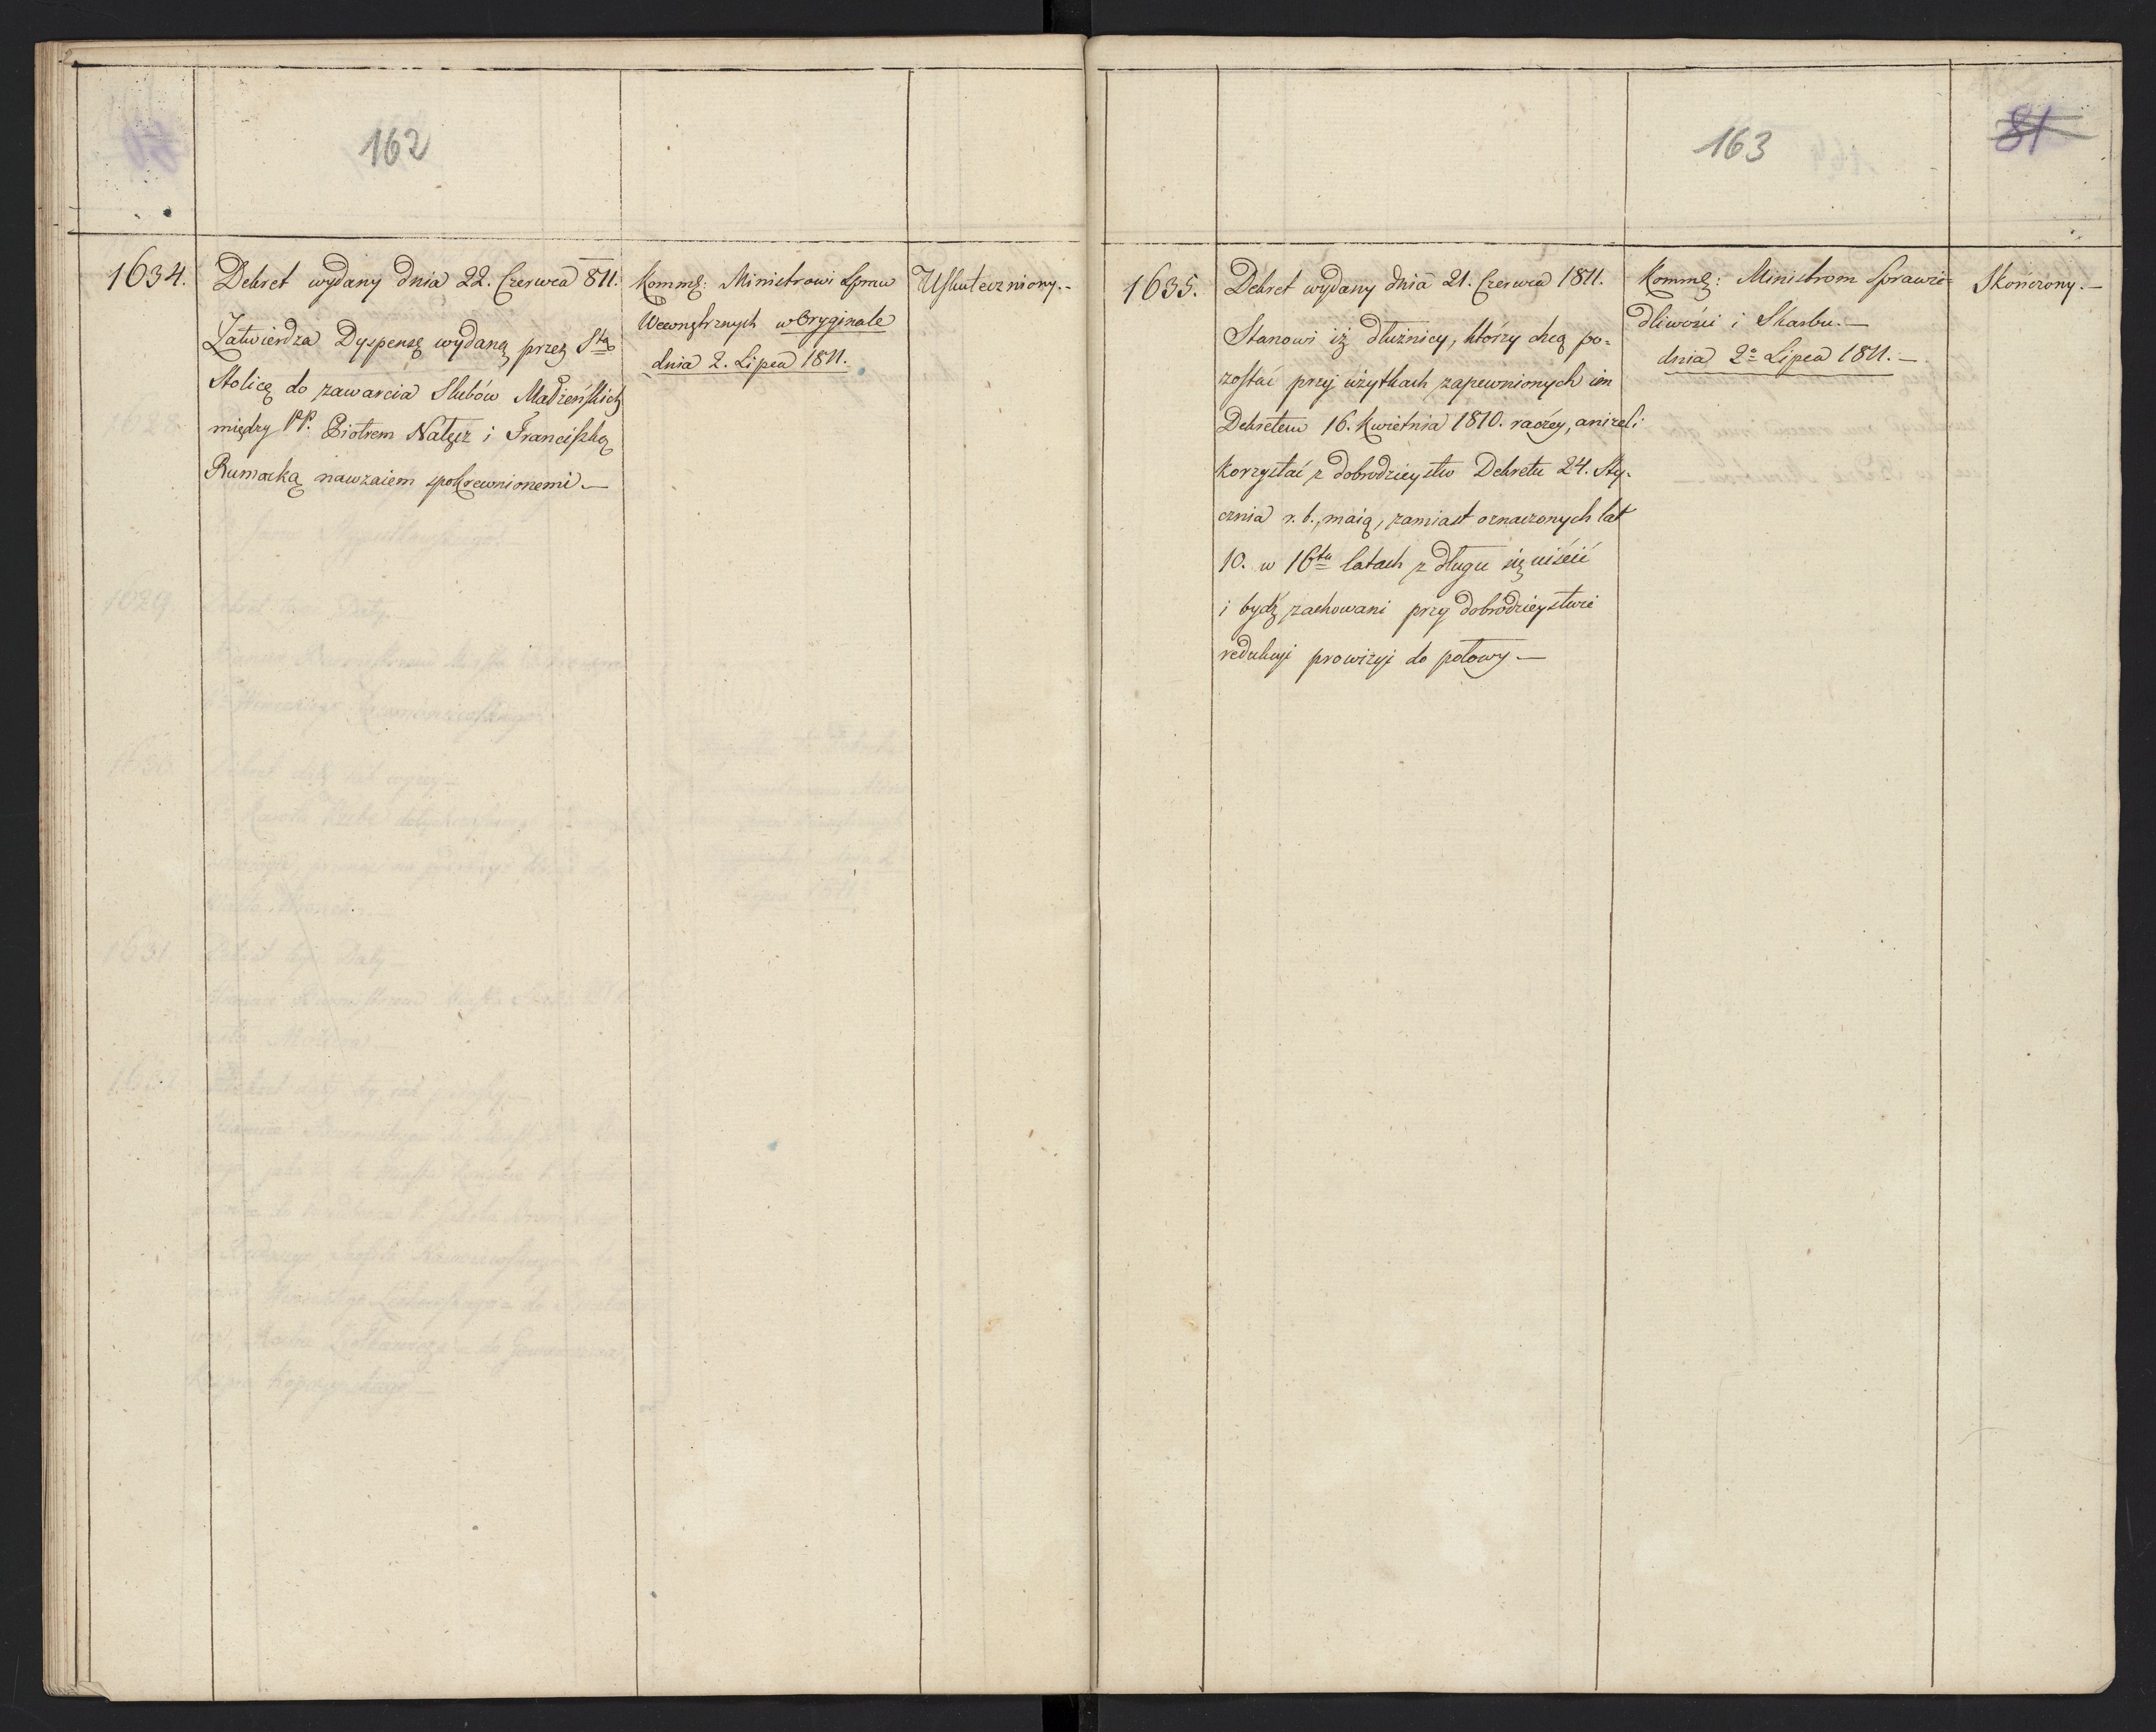 162
1634.
Dekret wydany dnia 22. Czerwca 811.
Zatwierdza Dyspensę wydaną przez Stą
Stolicę do zawarcia Slubów Małżeńskich
między PP. Piotrem Nałęcz i Franciszką
Rumocką nawzaiem spokrewnionemi. —
Kommę: Ministrowi Spraw
Wewnętrznych w Oryginale
dnia 2. Lipca 1811.
Uskuteczniony. -
163
81
1635.
Dekret wydany dnia 21. Czerwca 1811.
Stanowi iż dłużnicy, którzy chcą po-
zostać przy użytkach zapewnionych im
Dekretem 16. Kwietnia 1810. raczey, aniżeli
korzystać z dobrodzieystw Dekretu 24. Sty-
cznia r. b., maią, zamiast oznaczonych lat
10. w 16tu latach z długu się uiścić
i bydź zachowani przy dobrodzieystwie
redukcyi prowizyi do połowy —
Kommę: Ministrom Sprawie-
dliwości i Skarbu. —
dnia 2o Lipca 1811. —
Skończony. —